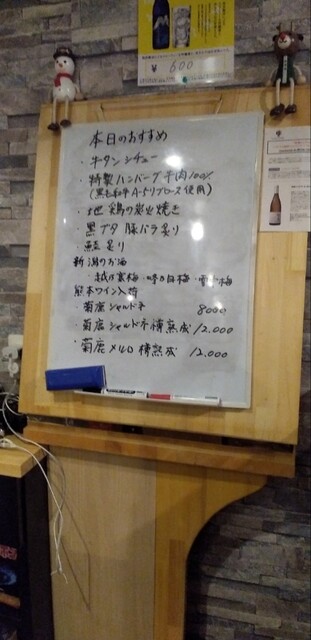 ¥ 600
本日のおすすめ
・牛タンシチュー
・特製ハンバーグ牛肉100%
(黒毛和牛A-5リブロース使用)
・地鶏の炭火焼き
・黒ブタ豚バラ炙り
・鮭炙り
新潟のお酒
・越乃寒梅・峰乃白梅・雪中梅
熊本ワイン入荷
・菊鹿シャルドネ 8000
・菊鹿シャルドネ樽熟成 12.000
・菊鹿メルロ樽熟成 12.000